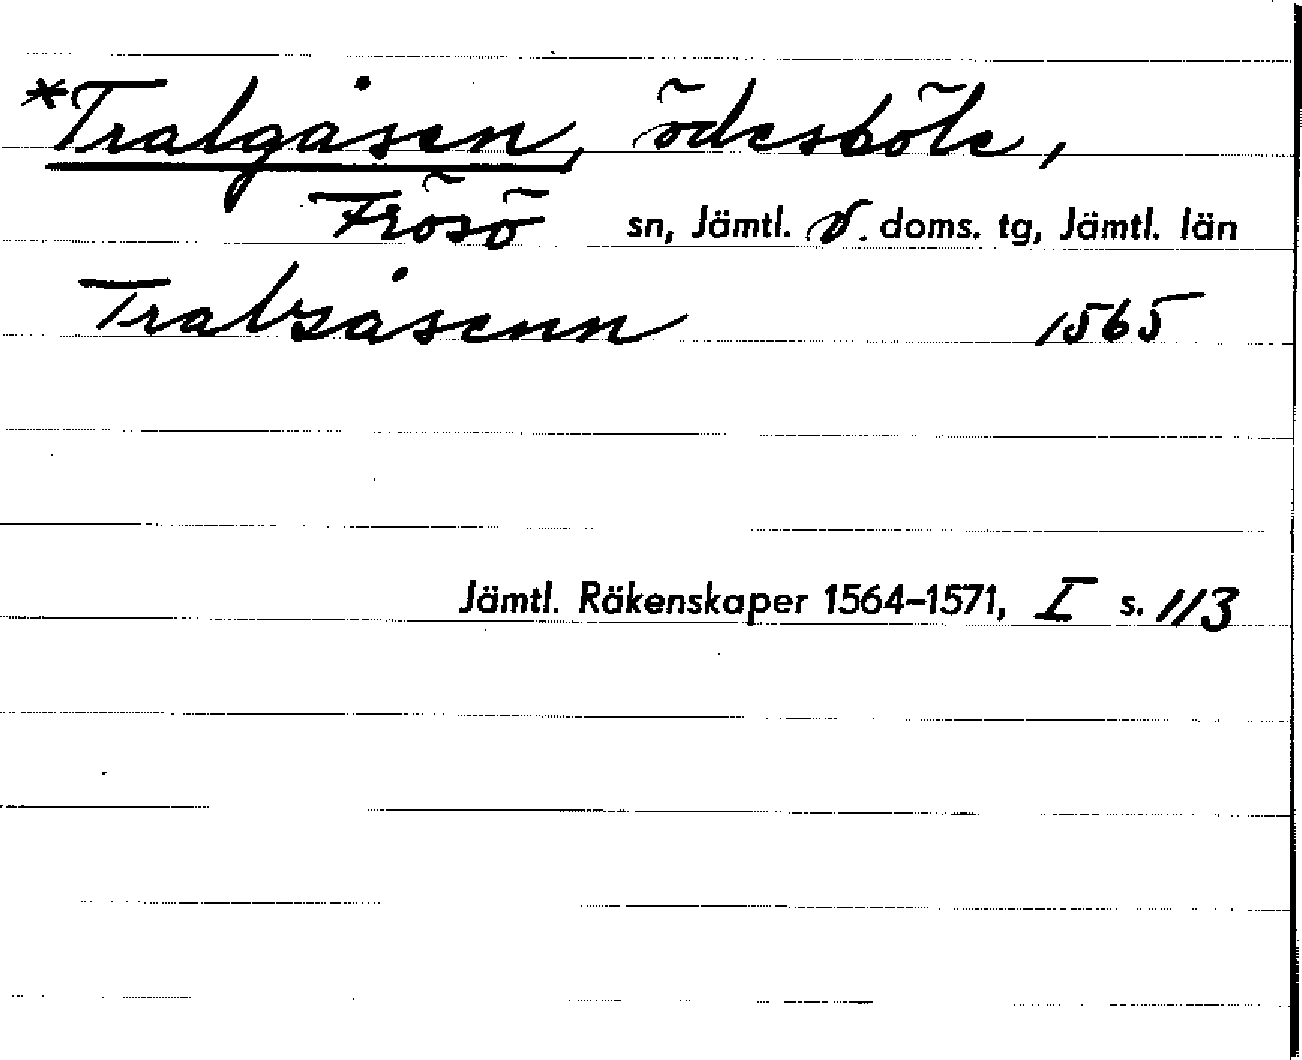 *Tralgåsen, ödesböle,
Frösö sn, Jämtl. v. doms. tg, Jämtl. län
Tralzåsenn 1565
Jämtl. Räkenskaper 1564-1571, I s. 113